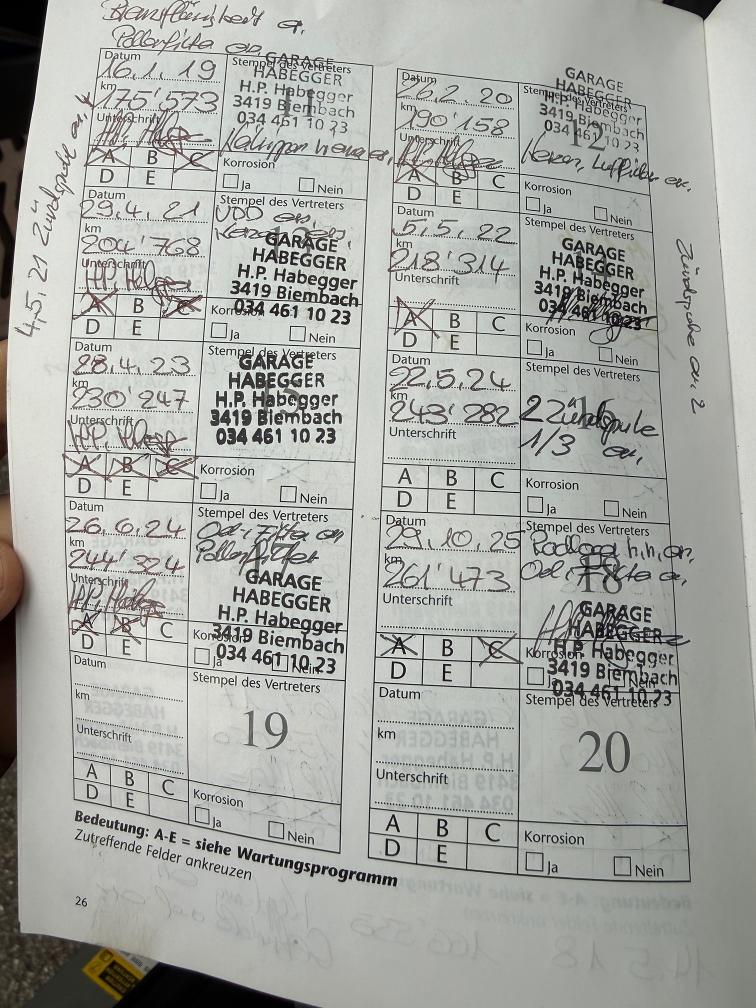 Pollenfilter er.
Datum
16.1.19
km
175'573
Unterschrift
A B C
D E
Stempel des Vertreters
11
GARAGE
HABEGGER
H.P. Habegger
3419 Biembach
034 461 10 23
Korrosion
Ja Nein
Datum
26.2.20
km
190'158
Unterschrift
A B C
D E
Stempel des Vertreters
12
GARAGE
HABEGGER
H.P. Habegger
3419 Biembach
034 461 10 23
Kerzen, Luftfilter er.
Korrosion
Ja Nein
4.5.21 Zündspule er.
Datum
29.4.21
km
204'768
Unterschrift
A B C
D E
Stempel des Vertreters
VDD er.
GARAGE
HABEGGER
H.P. Habegger
3419 Biembach
034 461 10 23
Korrosion
Ja Nein
Datum
5.5.22
km
218'314
Unterschrift
A B C
D E
Stempel des Vertreters
GARAGE
HABEGGER
H.P. Habegger
3419 Biembach
034 461 10 23
Korrosion
Ja Nein
Zündspule er. 2
Datum
28.4.23
km
230'247
Unterschrift
A B C
D E
Stempel des Vertreters
GARAGE
HABEGGER
H.P. Habegger
3419 Biembach
034 461 10 23
Korrosion
Ja Nein
Datum
22.5.24
km
243'282
Unterschrift
A B C
D E
Stempel des Vertreters
2 Zündspule
1/3 er.
Korrosion
Ja Nein
Datum
26.6.24
km
244'324
Unterschrift
A B C
D E
Stempel des Vertreters
Oel-Filter er.
Pollenfilter
GARAGE
HABEGGER
H.P. Habegger
3419 Biembach
034 461 10 23
Korrosion
Ja Nein
Datum
29.10.25
km
261'473
Unterschrift
A B C
D E
Stempel des Vertreters
Radlager h.h. er.
Oel, Filter er.
18
GARAGE
HABEGGER
H.P. Habegger
3419 Biembach
034 461 10 23
Korrosion
Ja Nein
Datum
km
Unterschrift
A B C
D E
Stempel des Vertreters
19
Korrosion
Ja Nein
Datum
km
Unterschrift
A B C
D E
Stempel des Vertreters
20
Korrosion
Ja Nein
Bedeutung: A-E = siehe Wartungsprogramm
Zutreffende Felder ankreuzen
26